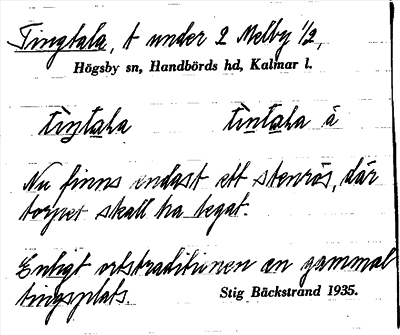 Tingtala, t under 2 Melby 1/2,
Högsby sn, Handbörds hd, Kalmar l.
tiŋtala tintala å
Nu finns endast ett stenrös, där
torpet skall ha legat.
Enligt ortstraditionen en gammal
tingsplats.
Stig Bäckstrand 1935.